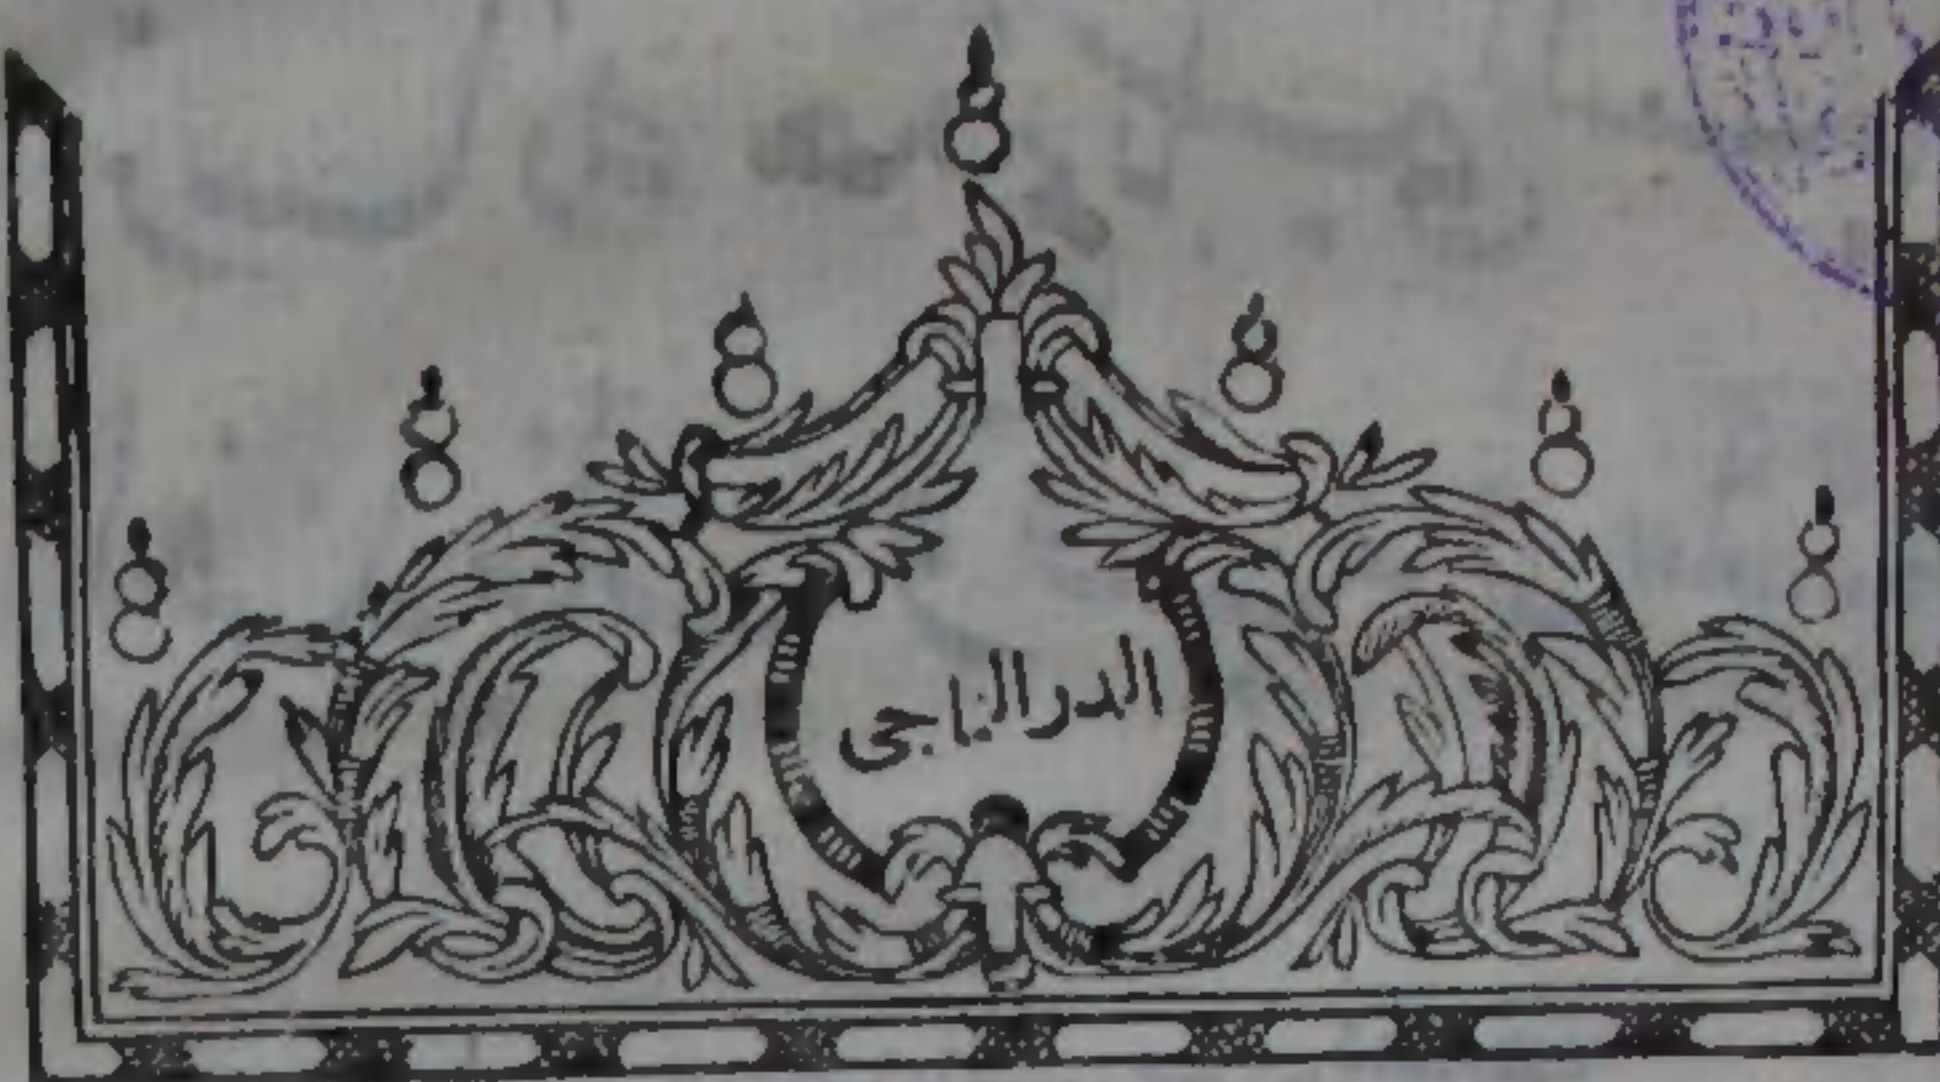 الدر الناجى